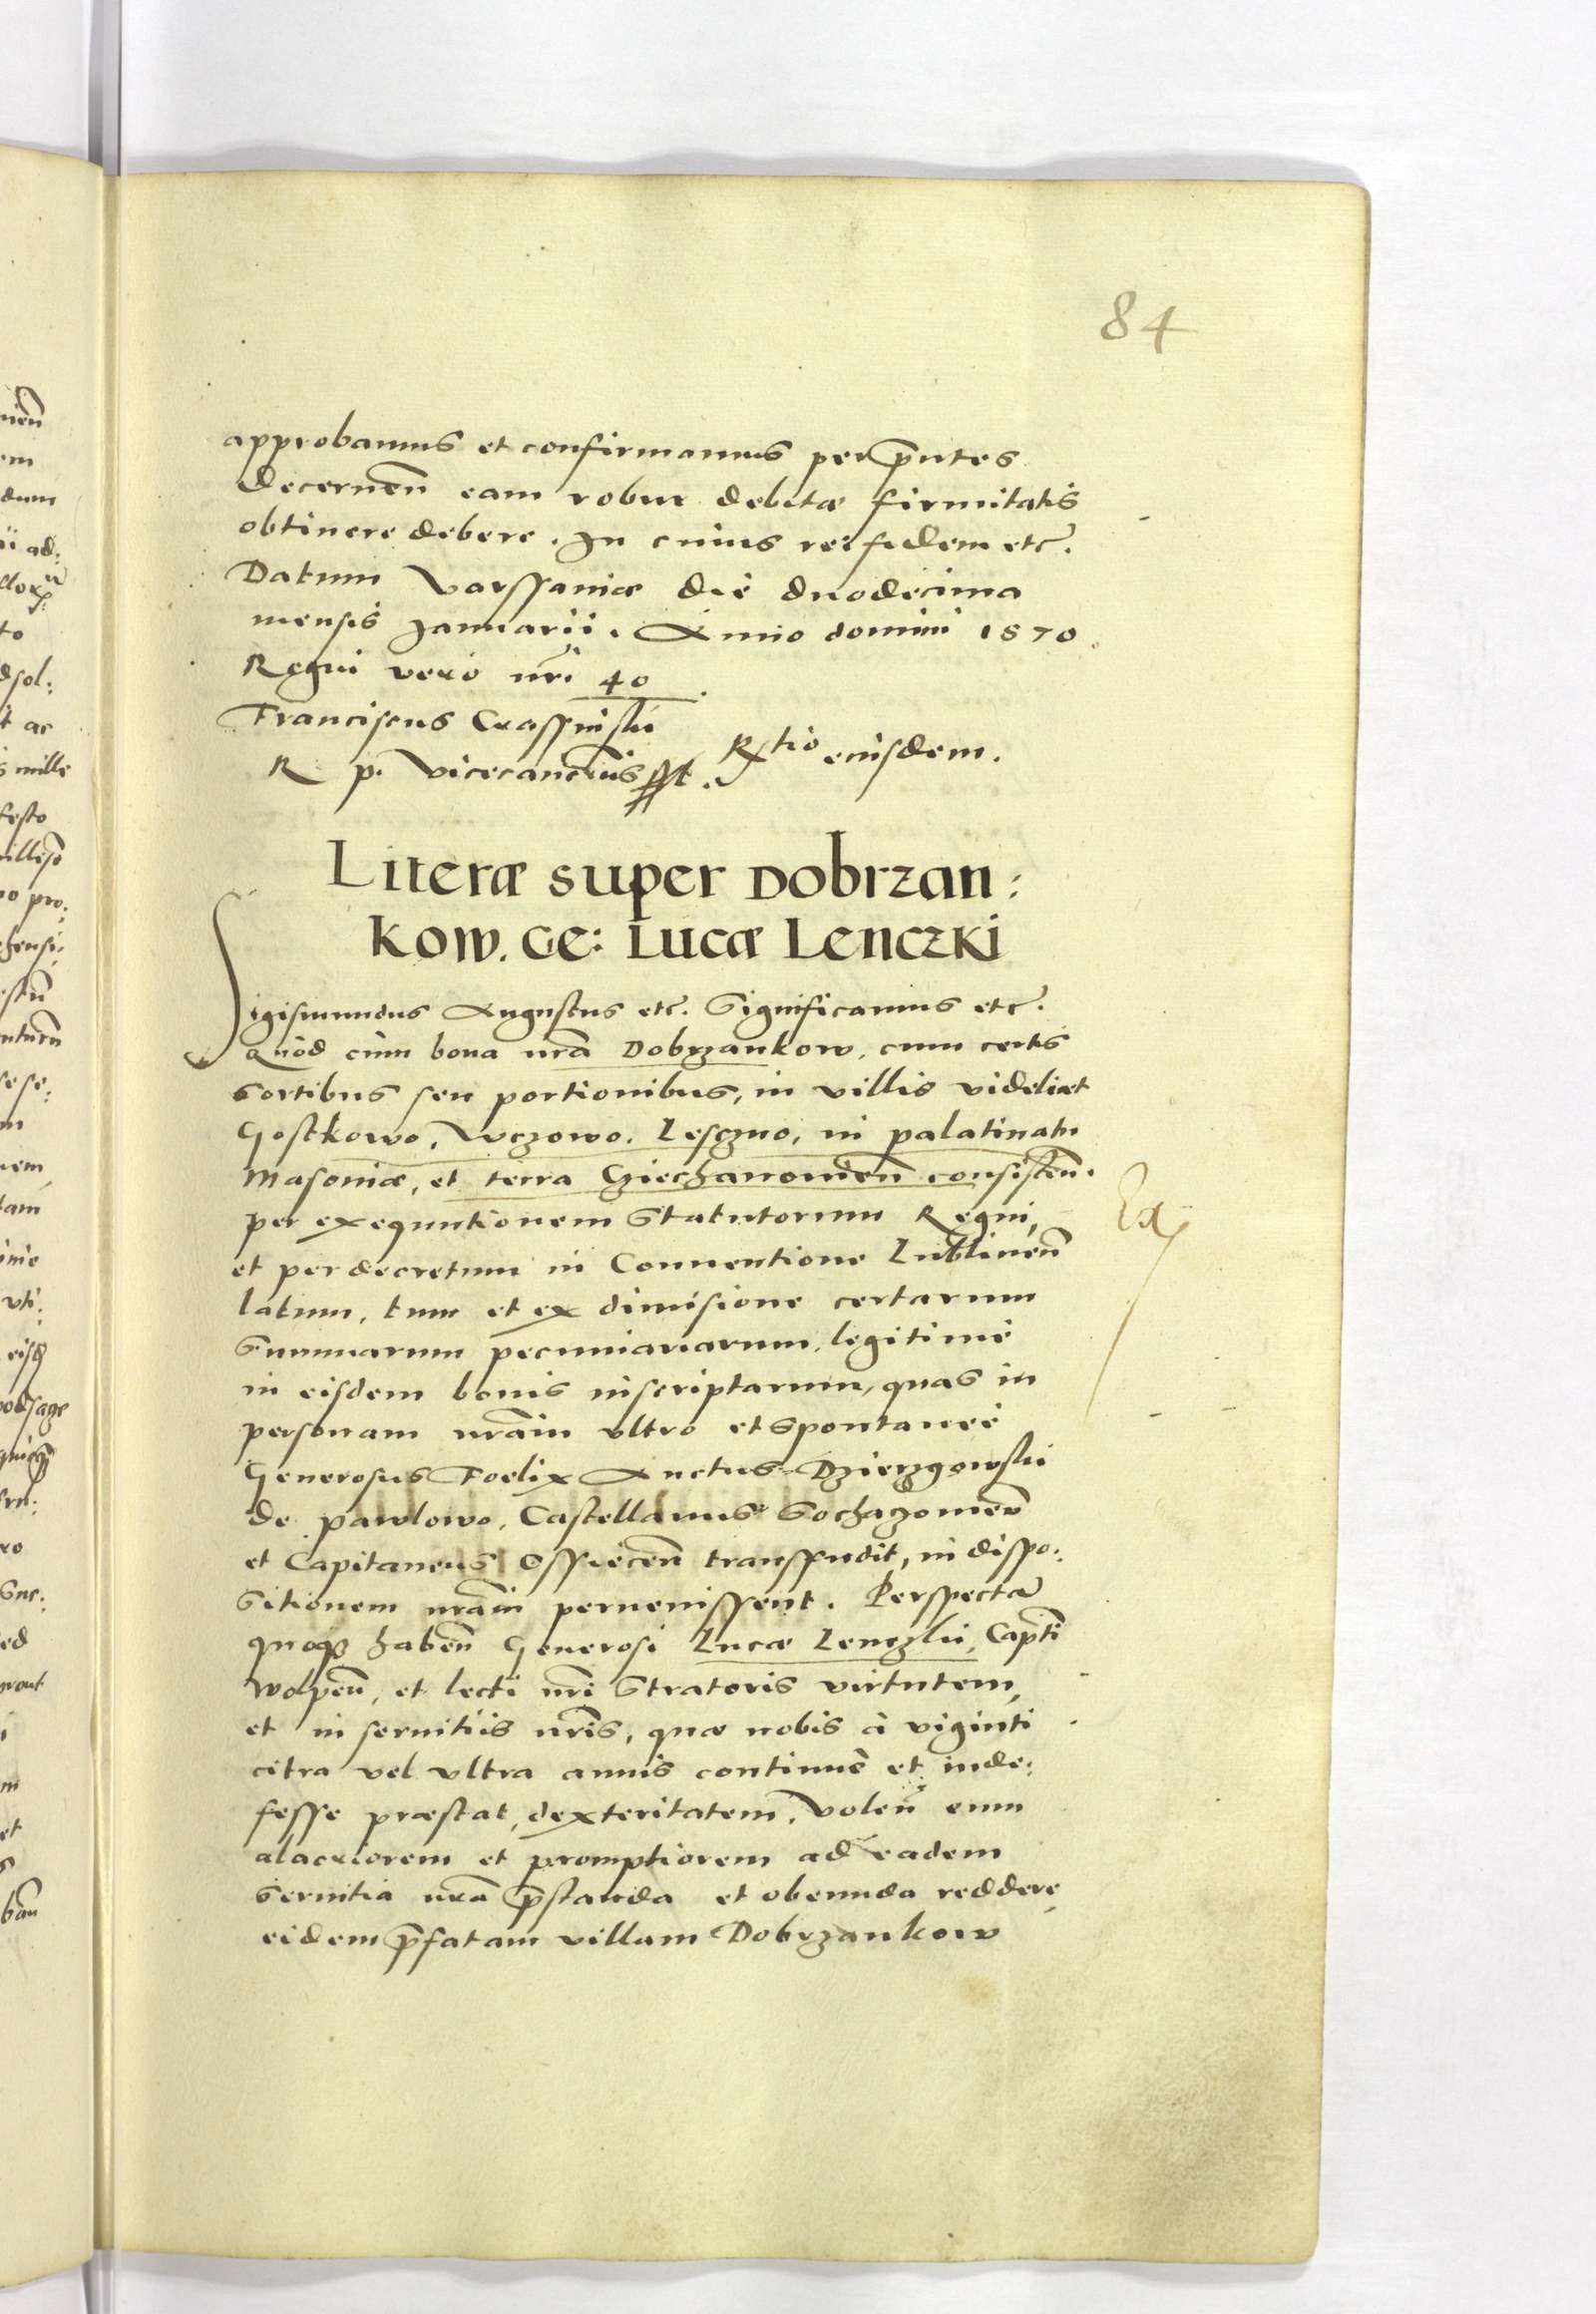 84
approbamus et confirmamus per p̃ntes
decernen̄ eam robur debitæ firmitatis
obtinere debere. In cuius rei fidem etc̃.
Datum Varssaviæ die duodecima
mensis Januarii. Anno domini 1570.
Regni vero nr̃i 40.
Franciscus Crassinski
R. p. Vicecancr̃ius sst. Rtio eiusdem.
Literæ super Dobrzan:
kow. Ge: Lucæ Lenczki
Sigismundus Augustus etc̃. Significamus etc̃.
Quod cum bona nr̃a Dobrzankow, cum certis
sortibus seu portionibus, in villis videlicet
Gostkowo, Wczowo, Lesczno, in palatinatu
Masoviæ, et terra Cziechanovien̄ consisten̄.
per exequutionem Statutorum Regni,
et per decretum in Conventione Lublinen̄
latum, tum et ex dimisione certarum
Summarum pecuniariarum, legitimè
in eisdem bonis inscriptarum, quas in
personam nr̃am ultro et spontaneè
Generosus Foelix Auctus Dzierzgowski
de Pawlowo, Castellanus Sochaczovien̄
et Capitaneus Ossiecen̄ transfudit, in dispo:
sitionem nr̃am pervenissent. Perspectā
quoq̨ haben̄ Generosi Lucæ Lenczki, Capt̄i
Wolpen̄, et lecti nr̃i Stratoris virtutem,
et in servitiis nr̃is, quæ nobis à viginti
citra vel ultra annis continuè et inde:
fesse præstat, dexteritatem, volen̄ eum
alacriorem et promptiorem ad eadem
servitia nr̃a p̃standa et obeunda reddere,
eidem p̃fatam villam Dobrzankow